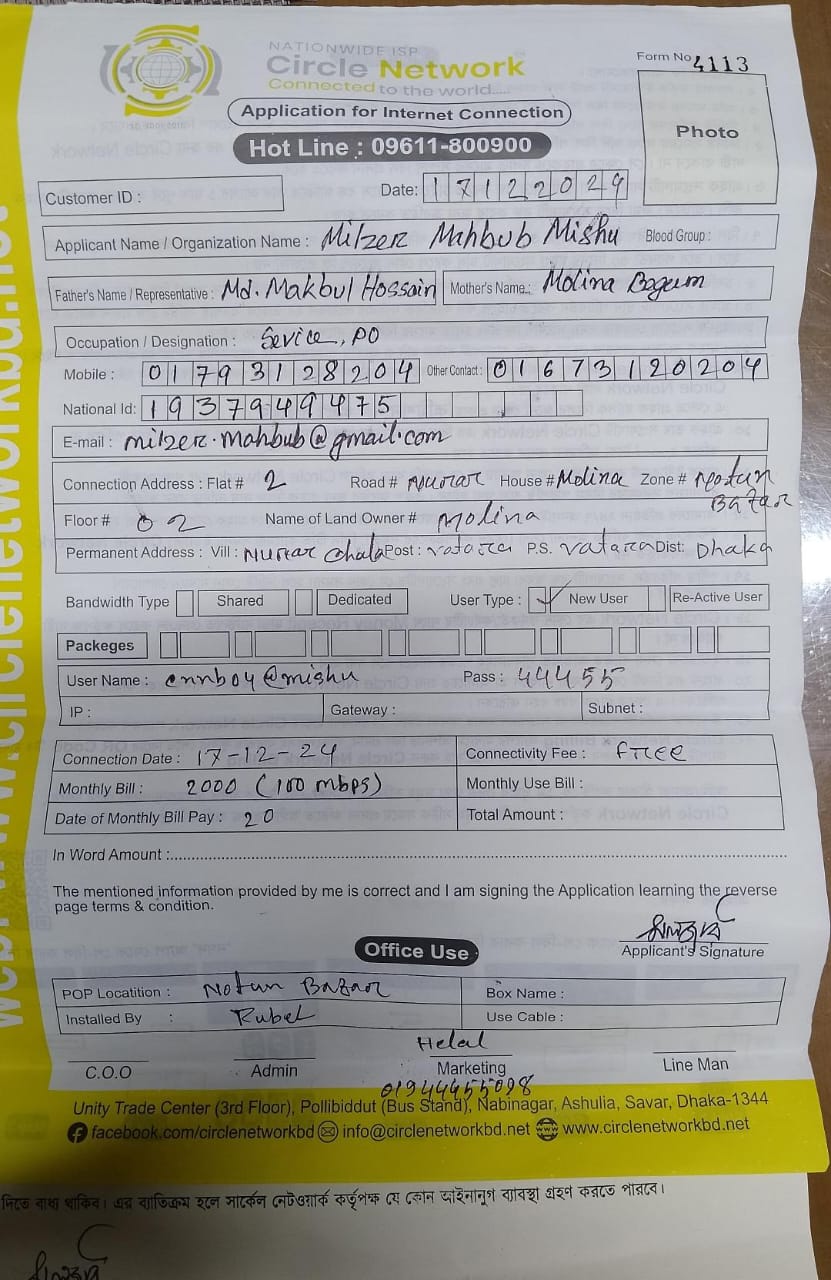 NATIONWIDE ISP
Circle Network
Connected to the world.....
Form No 4113
Application for Internet Connection
Hot Line : 09611-800900
Photo
Customer ID :
Date: 17122024
Applicant Name / Organization Name : Milzer Mahbub Mishu Blood Group :
Father's Name / Representative : Md. Makbul Hossain Mother's Name: Molina Begum
Occupation / Designation : Sevice, PO
Mobile : 01793128204 Other Contact : 01673120204
National Id: 1937949475
E-mail : milzer.mahbub@gmail.com
Connection Address : Flat # 2 Road # Nurar House # Molina Zone # Notun Bazar
Floor # 02 Name of Land Owner # Molina
Permanent Address : Vill : Nurar Chala Post : vatara P.S. vatara Dist: Dhaka
Bandwidth Type Shared Dedicated User Type : New User Re-Active User
Packeges
User Name : cnnb04@mishu Pass : 44455
IP : Gateway : Subnet :
Connection Date : 17-12-24 Connectivity Fee : free
Monthly Bill : 2000 (100 mbps) Monthly Use Bill :
Date of Monthly Bill Pay : 20 Total Amount :
In Word Amount :
The mentioned information provided by me is correct and I am signing the Application learning the reverse
page terms & condition.
Applicant's Signature
Office Use
POP Locatition : Notun Bazar Box Name :
Installed By : Rubel Use Cable :
Helal
C.O.O Admin Marketing Line Man
01944455098
Unity Trade Center (3rd Floor), Pollibiddut (Bus Stand), Nabinagar, Ashulia, Savar, Dhaka-1344
facebook.com/circlenetworkbd info@circlenetworkbd.net www.circlenetworkbd.net
দিতে বাধ্য থাকিব। এর ব্যতিক্রম হলে সার্কেল নেটওয়ার্ক কর্তৃপক্ষ যে কোন আইনানুগ ব্যাবস্থা গ্রহণ করতে পারবে।